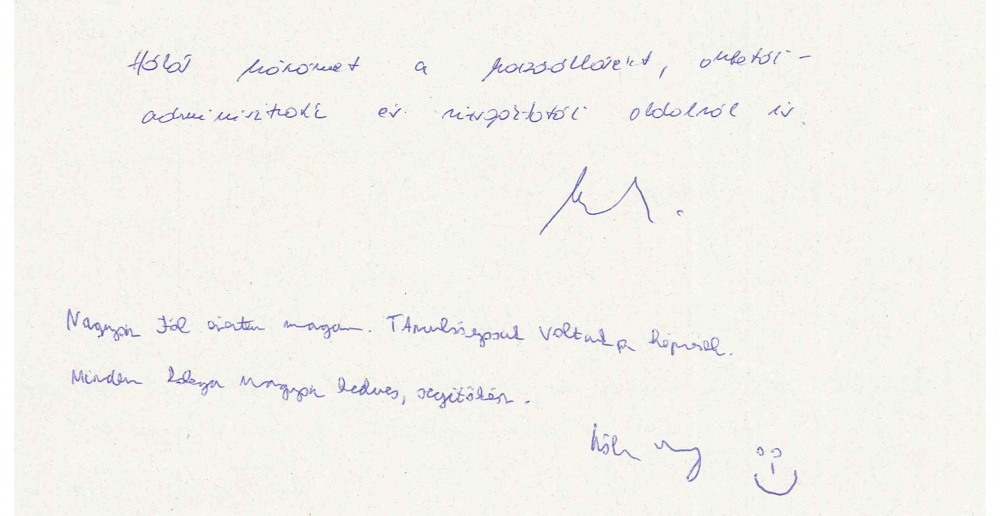 Hálás köszönet a hozzáállásért, oktatói-
adminisztratív és vizsgáztatói oldalról is.
Nagyon jól éreztem magam. TAnulságosak voltak a képzések.
Minden kolléga nagyon kedves, segítőkész.